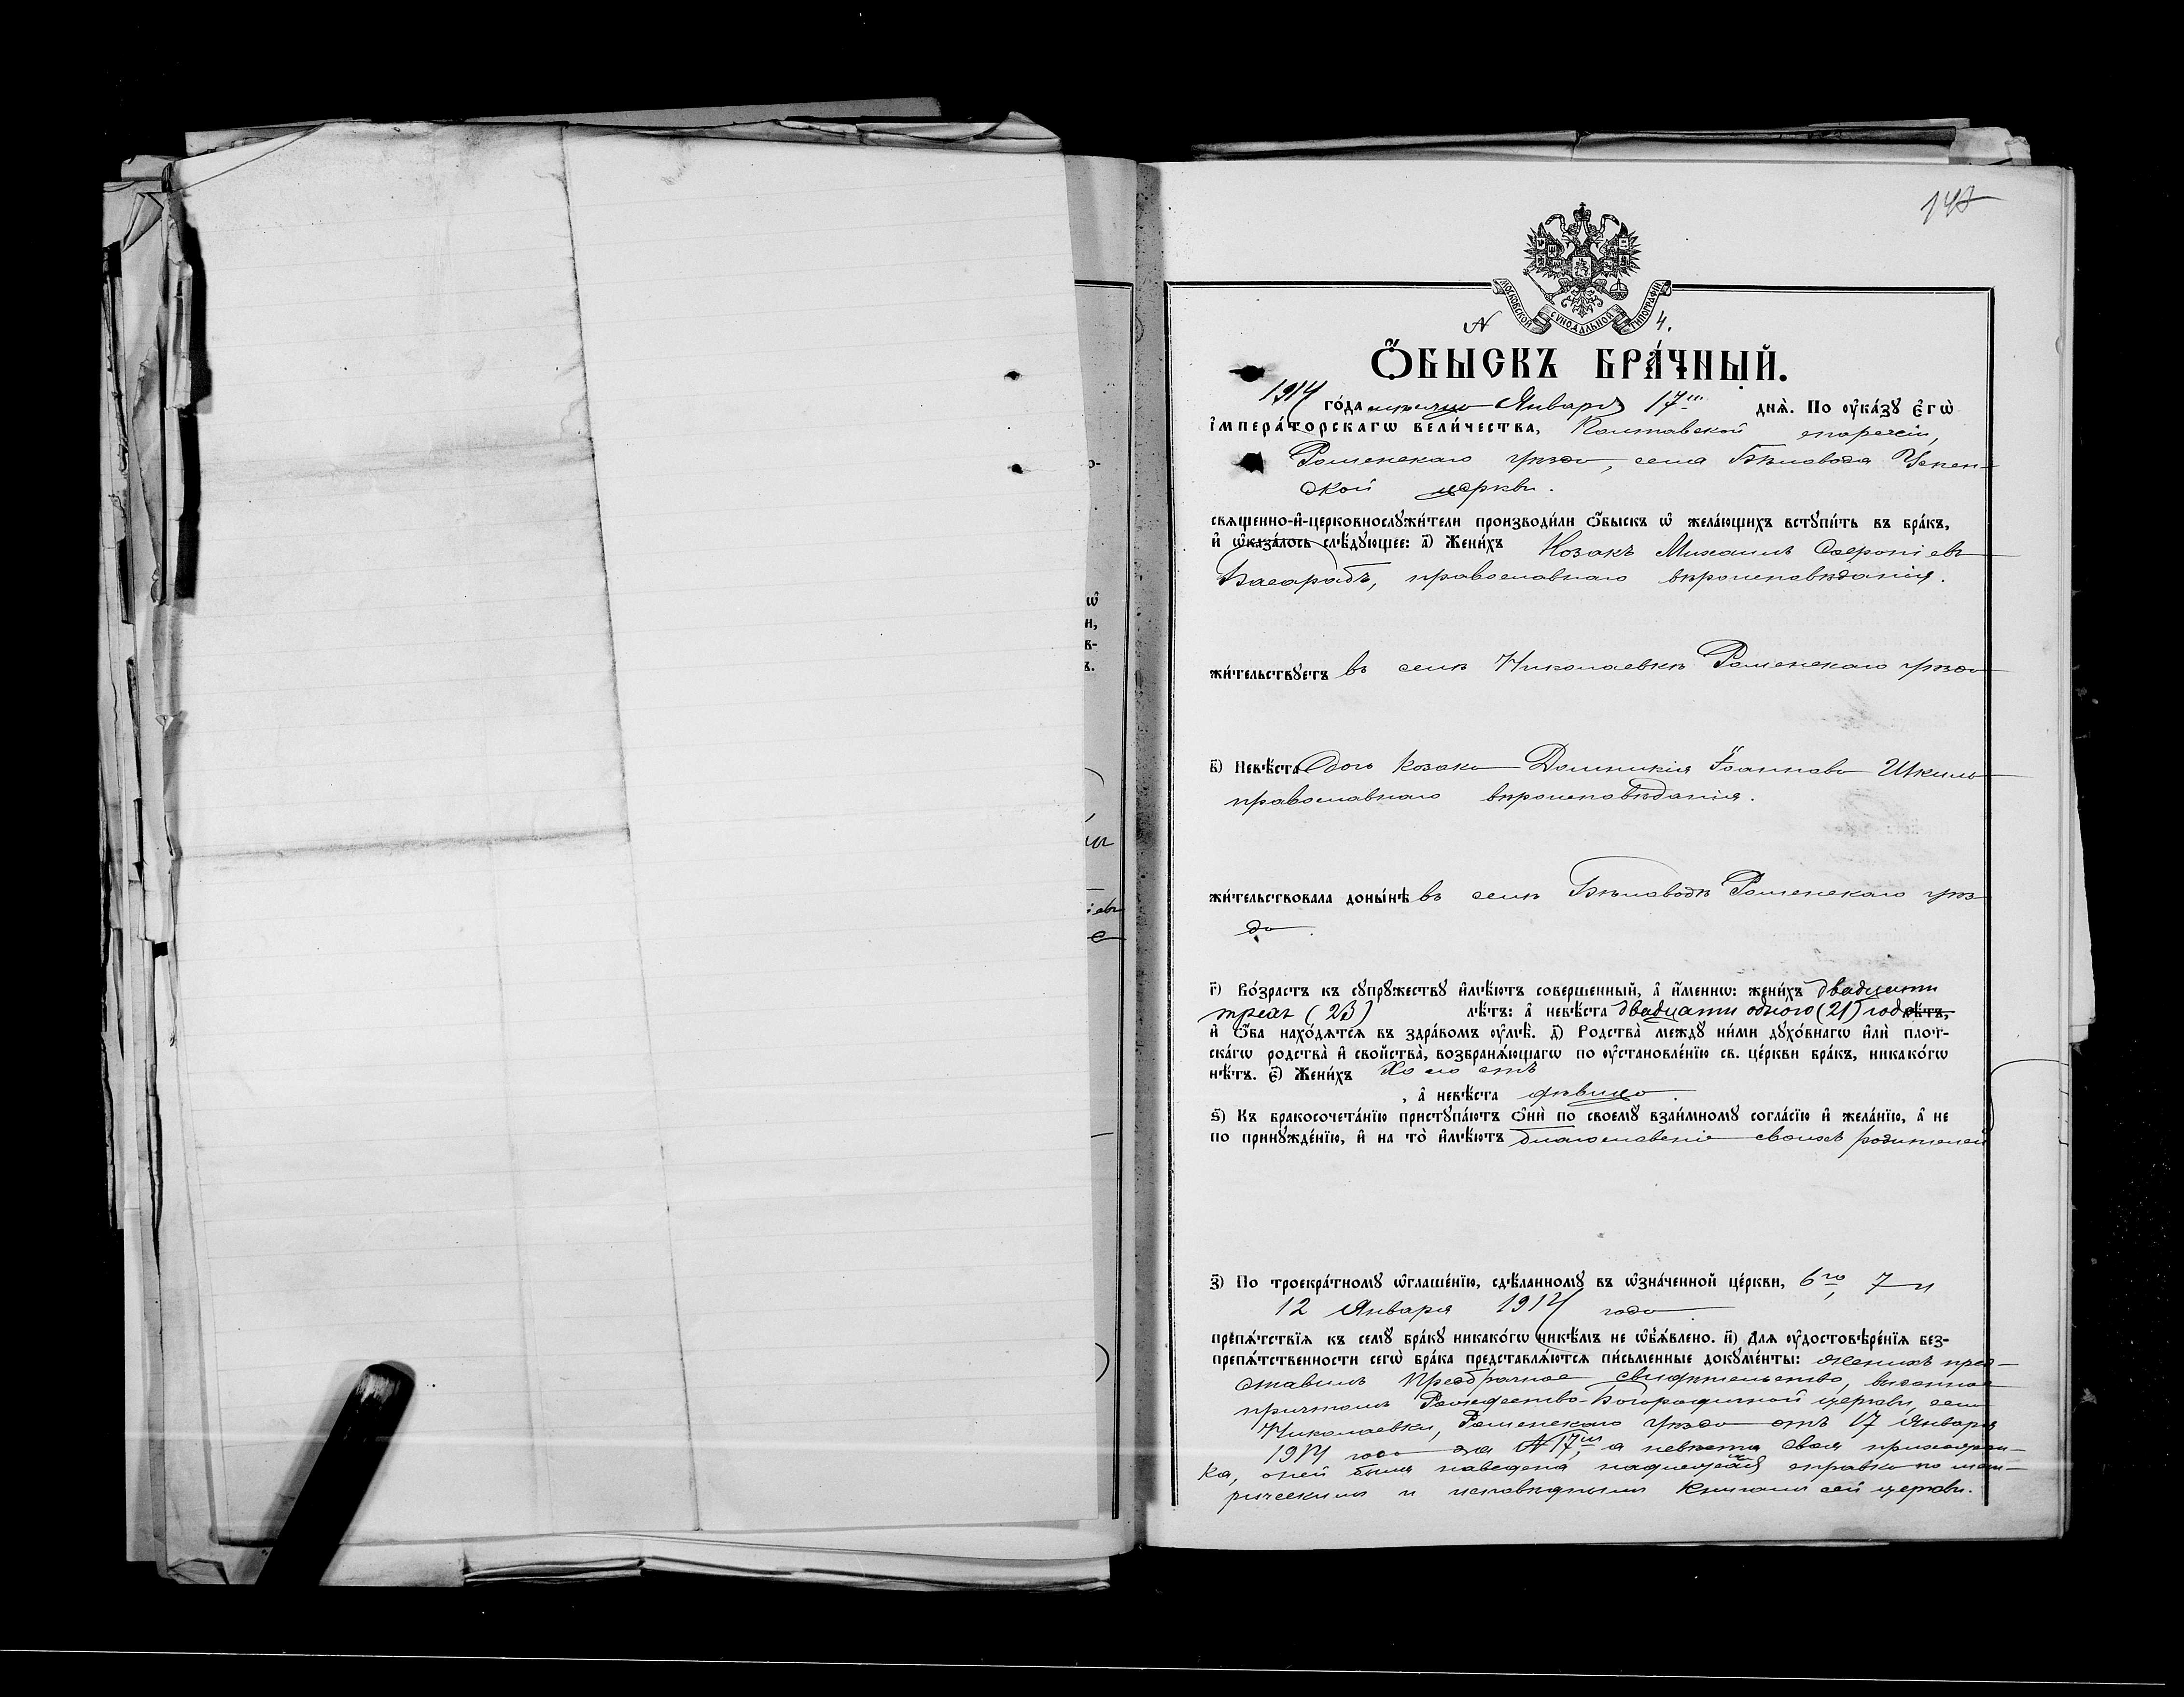 МОСКОВСКОЙ СѴНОДАЛЬНОЙ ТИПОГРАФІИ
№ 4.
Ѻ҆БЫСКЪ БРА́ЧНЫЙ.
1914 го́да мѣсяца Января 17го дня̀. По ᲂу҆ка́зꙋ Є҆гѡ̀
і҆мпера́торскагѡ вели́чества, Полтавской епархіи,
Роменскаго уѣзда, села Бѣловода Успен-
ской церкви.
священно-и҆-церковнослꙋжи́тели производи́ли ѻ҆́быскъ ѡ҆ жела́ющихъ встꙋпи́ть въ бра́къ,
и҆ ѡ҆каза́лось слѣ́дꙋющее: а҃) Жени́хъ Козакъ Михаилъ Софроніевъ
Басарабъ, православнаго вѣроисповѣданія.
жи́тельствꙋетъ въ селѣ Николаевкѣ Роменскаго уѣзда
в҃) Невѣ́ста Дочь козака Домникія Іоаннова Шкиль
православнаго вѣроисповѣданія.
жи́тельствовала доны́нѣ въ селѣ Бѣловодѣ Роменскаго уѣз-
да.
г҃) Во́зрастъ къ сꙋпрꙋжествꙋ и҆мѣ́ютъ соверше́нный, а҆ и҆́меннѡ: жени́хъ двадцати
трехъ (23) лѣ́тъ: а҆ невѣ́ста двадцати одного (21) года лѣ́тъ,
и҆ ѻ҆́ба нахо́дятся въ здра́вомъ ᲂу҆мѣ̀. д҃) Родства̀ междꙋ ни́ми дꙋхо́внагѡ и҆лѝ плот-
ска́гѡ родства̀ и҆ свойства̀, возбраня́ющагѡ по ᲂу҆становле́нїю св. це́ркви бра́къ, никако́гѡ
нѣ́тъ. є҃) Жени́хъ Холостъ
, а҆ невѣ́ста дѣвица.
ѕ҃) Къ бракосочета́нїю пристꙋпа́ютъ ѻ҆нѝ по своемꙋ̀ взаи́мномꙋ согла́сїю и҆ жела́нїю, а҆ не
по принꙋжде́нїю, и҆ на то̀ и҆мѣ́ютъ благословеніе своихъ родителей
з҃) По троекра́тномꙋ ѡ҆глаше́нїю, сдѣ́ланномꙋ въ ѡ҆зна́ченной це́ркви, 6го, 7 и
12 Января 1914 года
препѧ́тствїя къ семꙋ̀ бра́кꙋ никако́гѡ никѣ́мъ не ѡ҆б̾я́влено. и҃) Для ᲂу҆достовѣре́нїя без-
препѧ́тственности сегѡ̀ бра́ка представля́ются пи́сьменные докꙋме́нты: женихъ пред-
ставилъ Предбрачное свидѣтельство, выданное
причтомъ Рождество-Богородичной церкви, села
Николаевки, Роменскаго уѣзда отъ 17 Января
1914 года за № 17м, а невѣста своя прихожан-
ка, о ней была наведена надлежащая справка по мет-
рическимъ и исповѣднымъ книгамъ сей церкви.